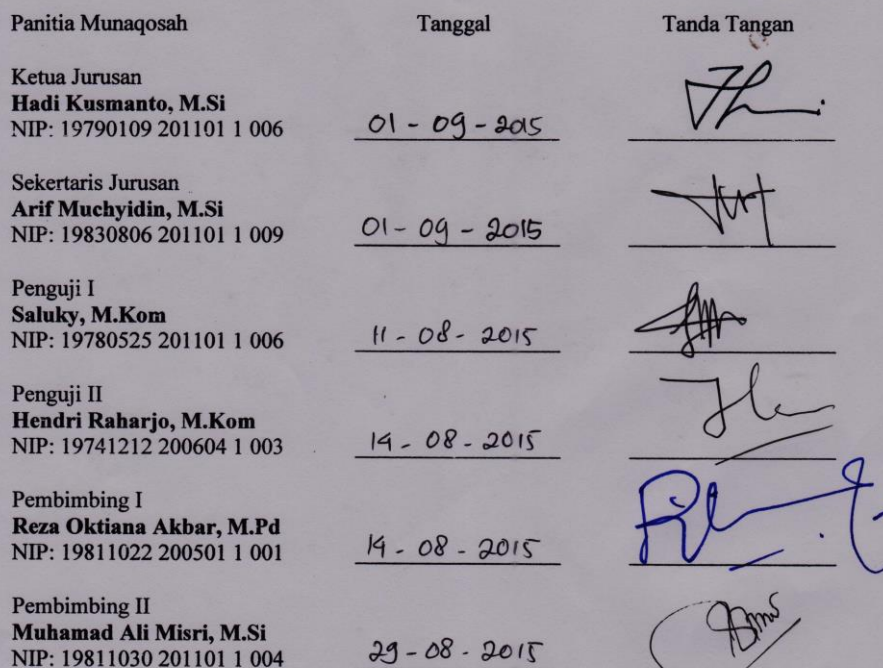 Panitia Munaqosah Tanggal Tanda Tangan
Ketua Jurusan
Hadi Kusmanto, M.Si
NIP: 19790109 201101 1 006 01 - 09 - 2015
Sekertaris Jurusan
Arif Muchyidin, M.Si
NIP: 19830806 201101 1 009 01 - 09 - 2015
Penguji I
Saluky, M.Kom
NIP: 19780525 201101 1 006 11 - 08 - 2015
Penguji II
Hendri Raharjo, M.Kom
NIP: 19741212 200604 1 003 14 - 08 - 2015
Pembimbing I
Reza Oktiana Akbar, M.Pd
NIP: 19811022 200501 1 001 14 - 08 - 2015
Pembimbing II
Muhamad Ali Misri, M.Si
NIP: 19811030 201101 1 004 29 - 08 - 2015